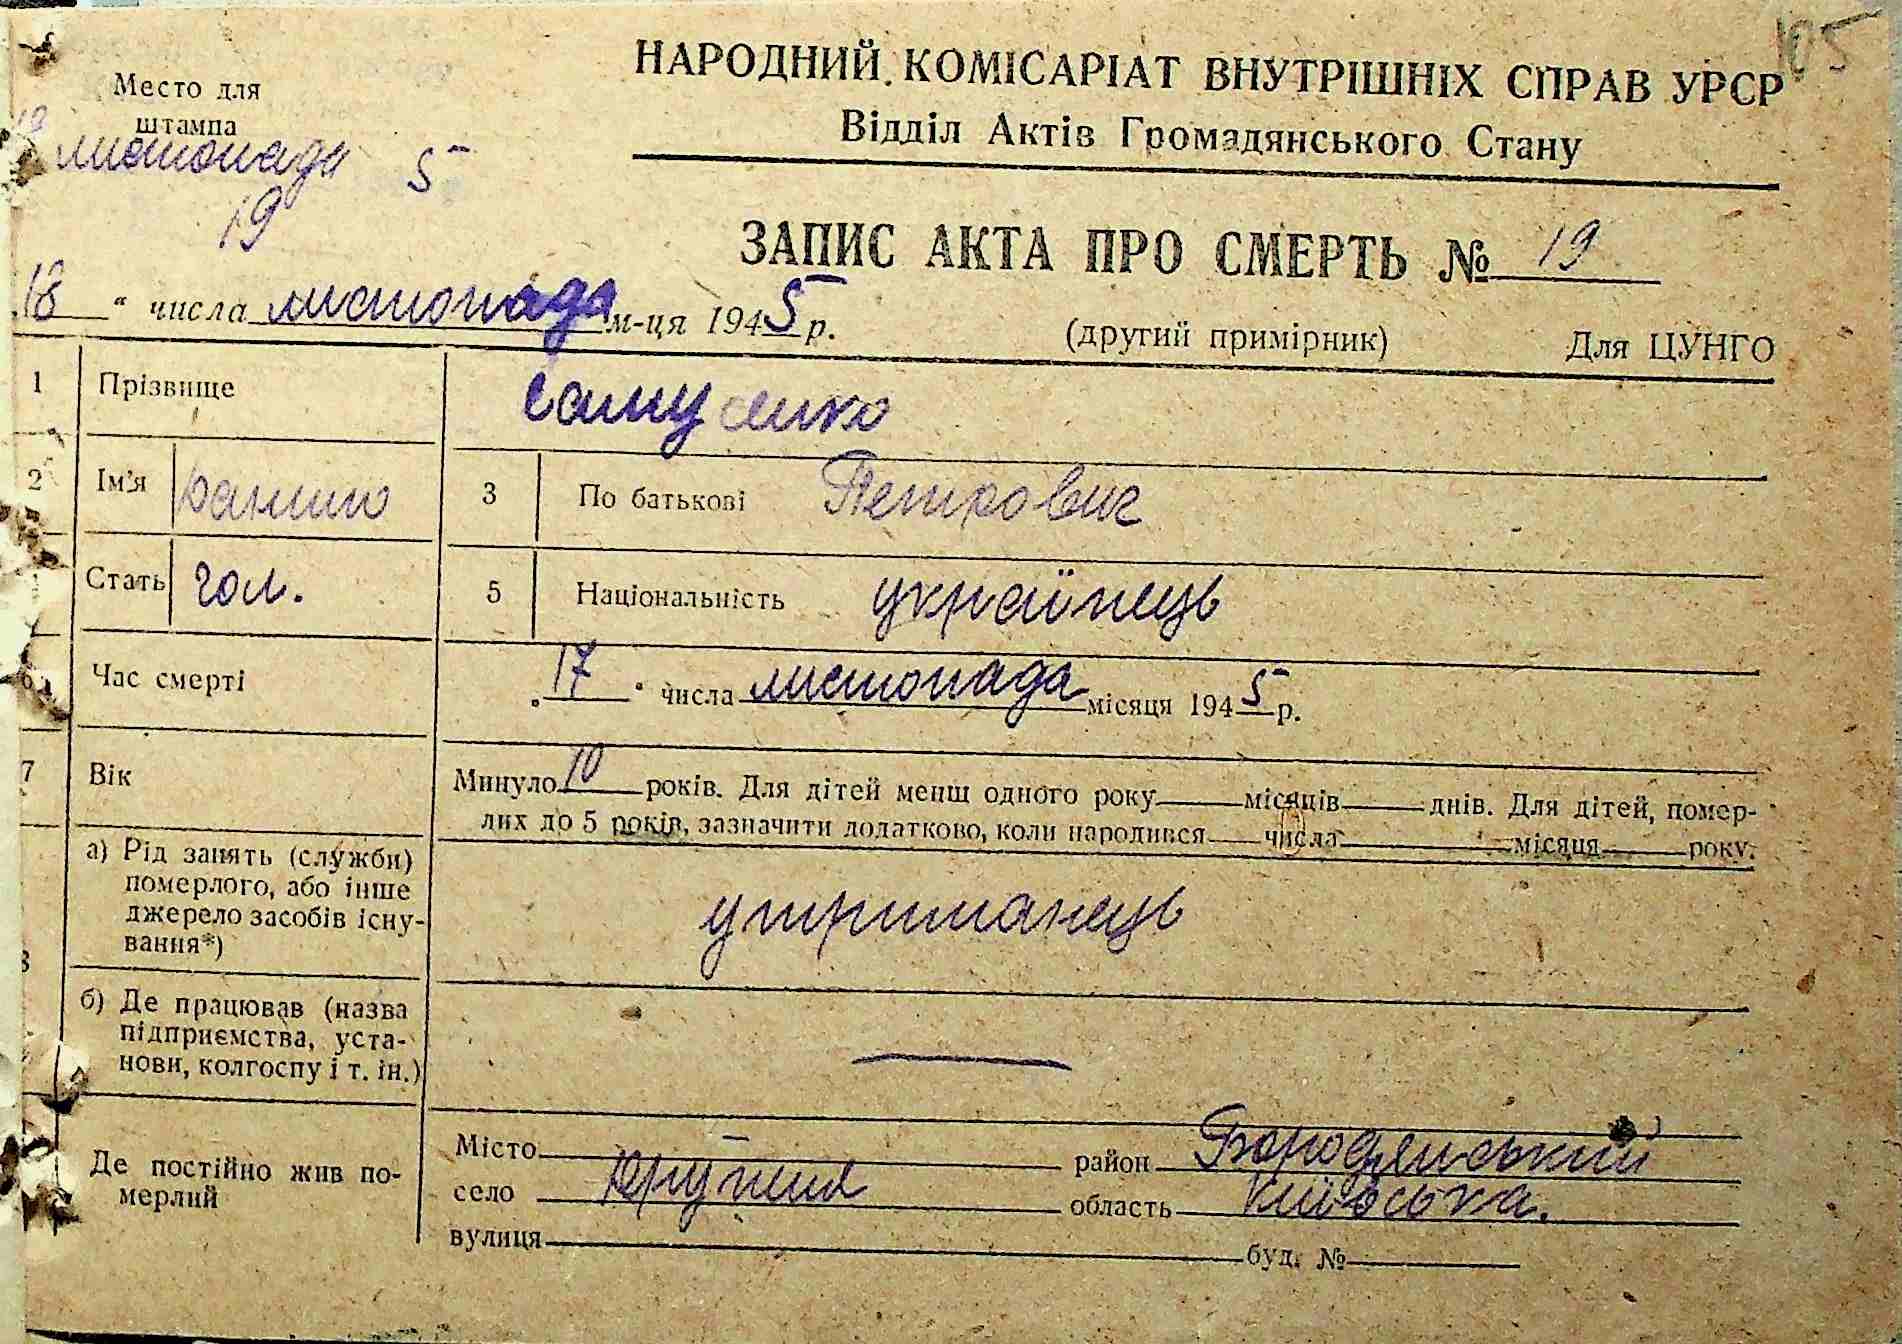 105
НАРОДНИЙ КОМІСАРІАТ ВНУТРІШНІХ СПРАВ УРСР
Відділ Актів Громадянського Стану
Место для
штампа
19
листопада 5
19
ЗАПИС АКТА ПРО СМЕРТЬ № 19
18 " числа листопада м-ця 1945 р.
(другий примірник) Для ЦУНГО
1 Прізвище Самуленко
2 Ім'я 3 По батькові Петрович
Стать чол. 5 Національність українець
6 Час смерті „ 17 " числа листопада місяця 1945 р.
7 Вік Минуло 10 років. Для дітей менш одного року місяців днів. Для дітей, помер-
лих до 5 років, зазначити додатково, коли народився числа місяця року.
8 а) Рід занять (служби)
померлого, або інше
джерело засобів існу-
вання*)
утриманець
б) Де працював (назва
підприємства, уста-
нови, колгоспу і т. ін.)
—
Де постійно жив по-
мерлий
Місто — район Бородянський
село область Київська.
вулиця буд. №